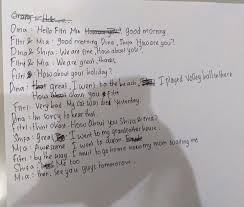 Dina : Hello Fitri Mia good morning
Fitri & Mia : Good morning Dina, Shifa How are you?
Dina & Shifa : We are fine, How about you?
Fitri & Mia : We are great, thanks
Fitri : How about your holiday?
Dina : great, I went to the beach, I played Volley ball there
How about you Fitri
Fitri : Very bad My cat was died yesterday.
Dina : I'm sorry to hear that
Fitri : that okay. How about you Shifa & Mia
Shifa : great, I went to my grandmother house
Mia : Awesome I went to
Fitri : by the way I must to go home now my mom waiting me
Shifa : Me too
Mia : then, see you guys tomorrow.